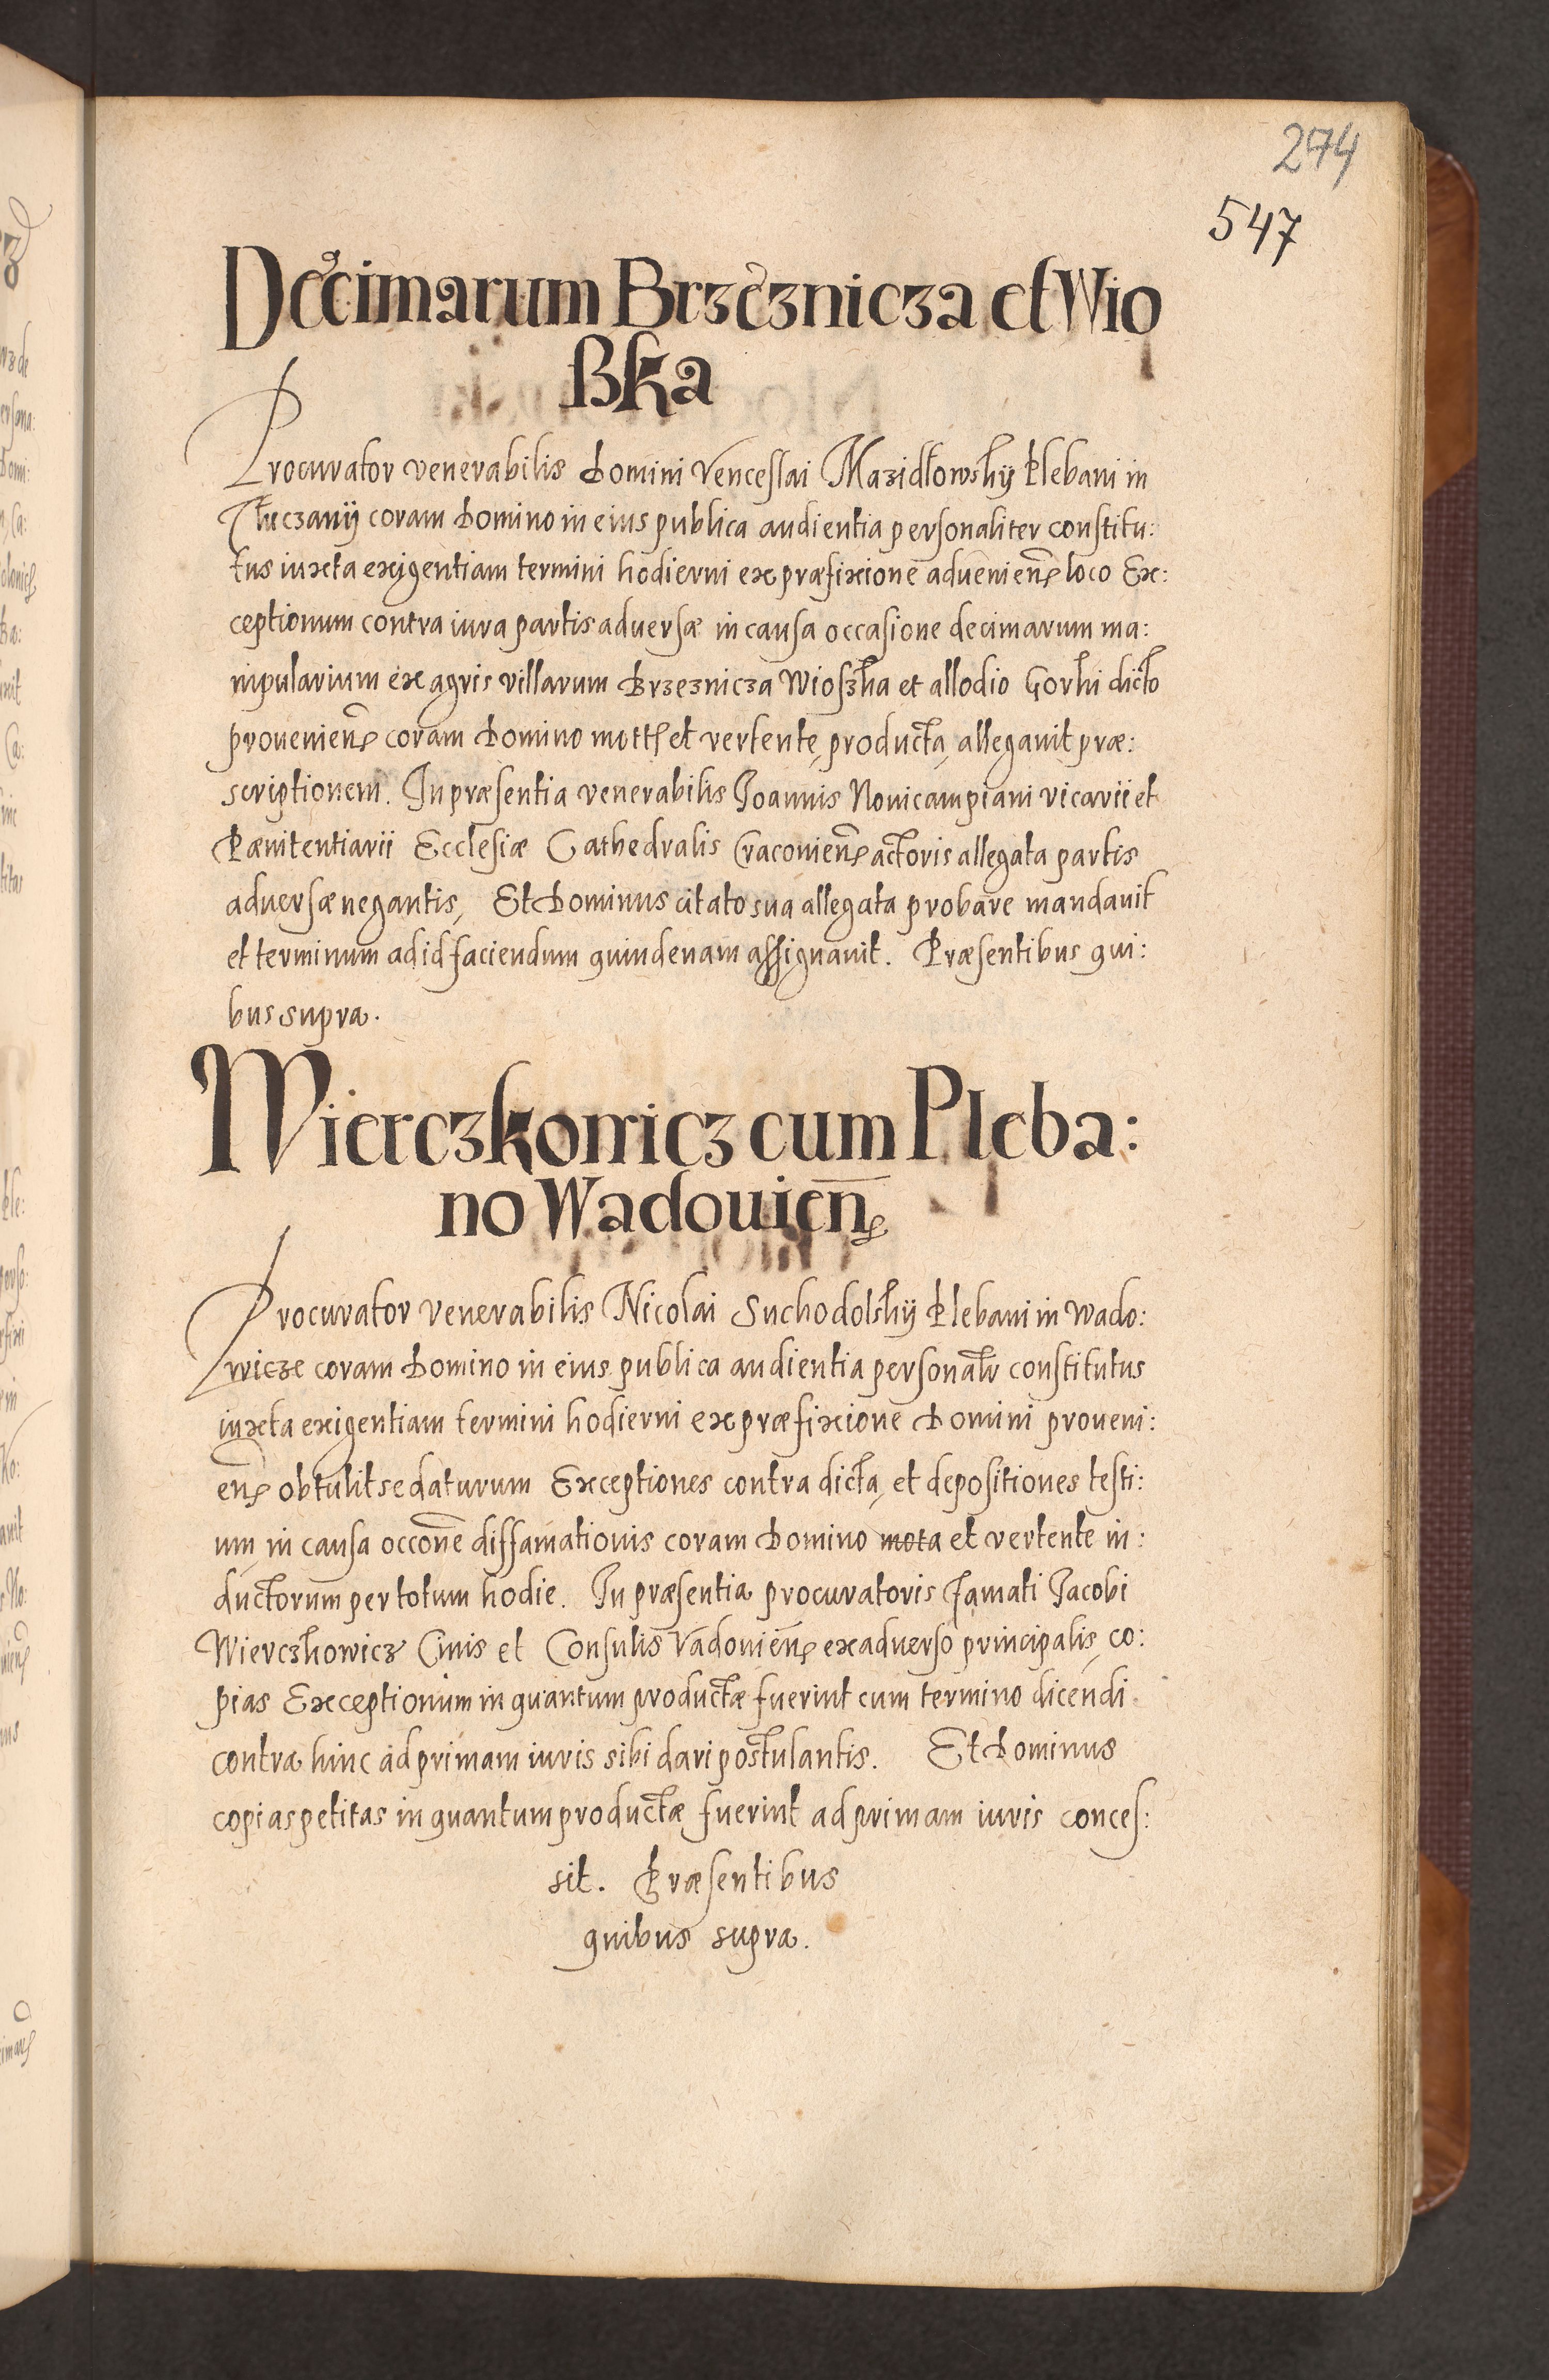 274
547
Decimarum Brzeznicza et Wio
ßka
Procurator venerabilis Domini Venceslai Mazidłowskÿ Plebani in
Tłuczanÿ coram Domino in eius publica audientia personaliter constitu:
tus iuxta exigentiam termini hodierni ex præfixione adueniens loco Ex:
ceptionum contra iura partis aduersæ in causa occasione decimarum ma:
nipularium ex agris villarum Brzeznicza Wioszka et allodio Gorki dicto
prouenien coram Domino et vertente, producta, allegauit præ:
scriptionem. In præsentia venerabilis Joannis Nouicampiani vicarii et
Pænitentiarii Ecclesiæ Cathedralis Cracouien actoris allegata partis
aduersæ negantis, Et Dominus citato sua allegata probare mandauit
et terminum ad id faciendum quindenam assignauit. Præsentibus qui:
bus supra.
Wierczkowicz cum Pleba:
no Wadouien
Procurator venerabilis Nicolai Suchodolskÿ Plebani in Wado:
wicze coram Domino in eius publica audientia personalr constitutus
iuxta exigentiam termini hodierni ex præfixione Domini proueni:
ens obtulit se daturum Exceptiones contra dicta, et depositiones testi:
um, in causa occone diffamationis coram Domino mota et vertente in:
ductorum per totum hodie. In præsentia procuratoris famati Jacobi
Wierczkowicz Ciuis et Consulis Vadouien ex aduerso principalis, co:
pias Exceptionum in quantum productæ fuerint cum termino dicendi
contra hinc ad primam iuris sibi dari postulantis. Et Dominus
copias petitas in quantum productæ fuerint ad primam iuris conces:
sit. Præsentibus
quibus supra.